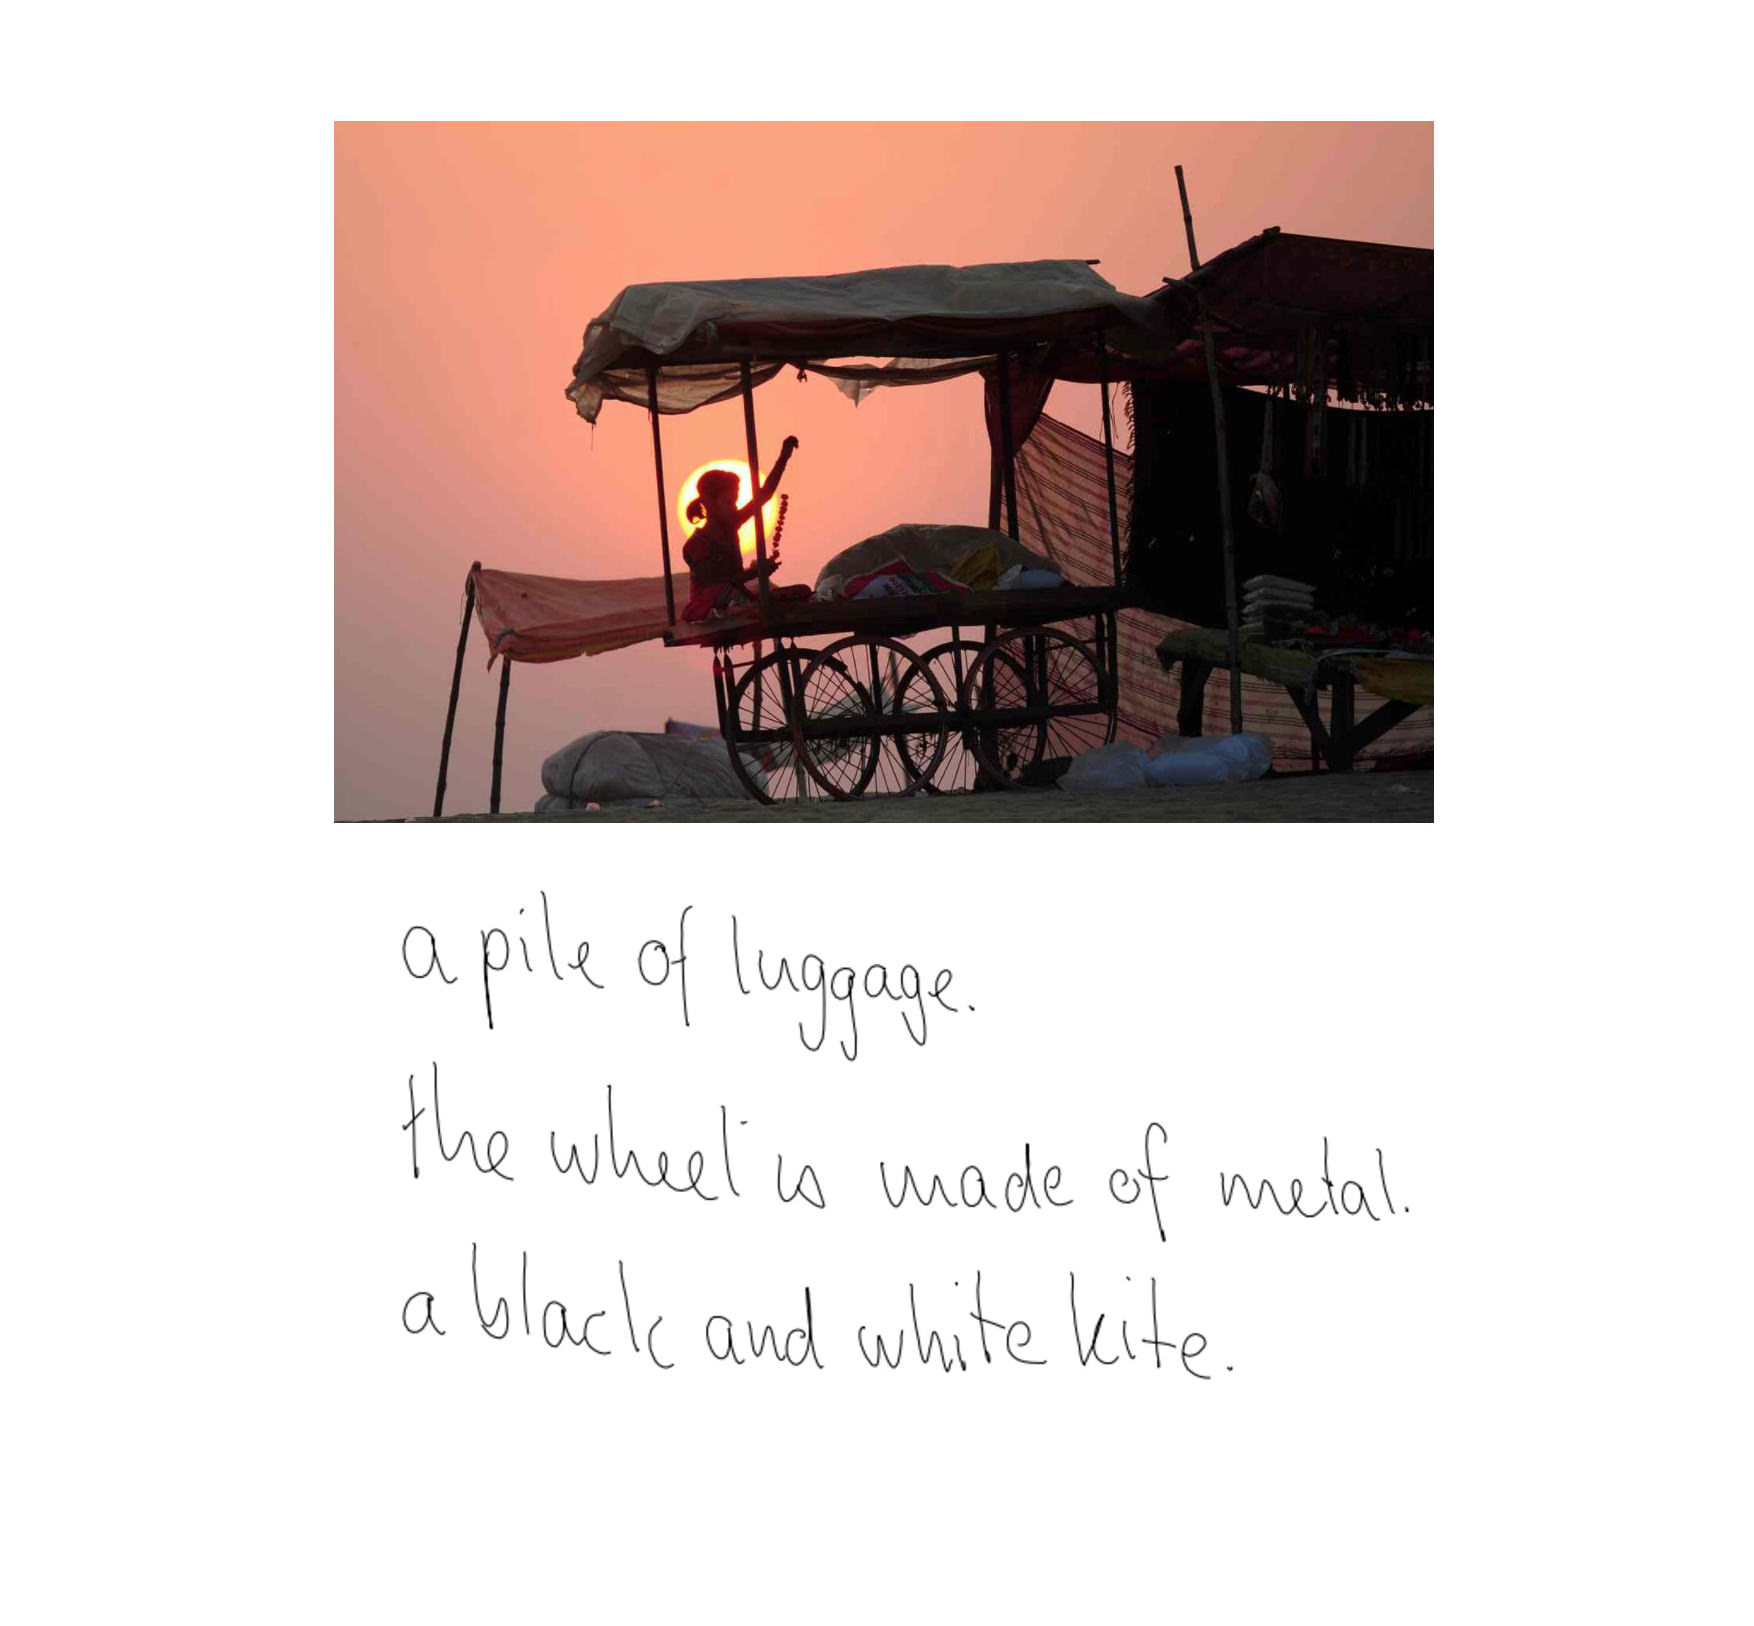 a pile of luggage.
the wheel is made of metal.
a black and white kite.